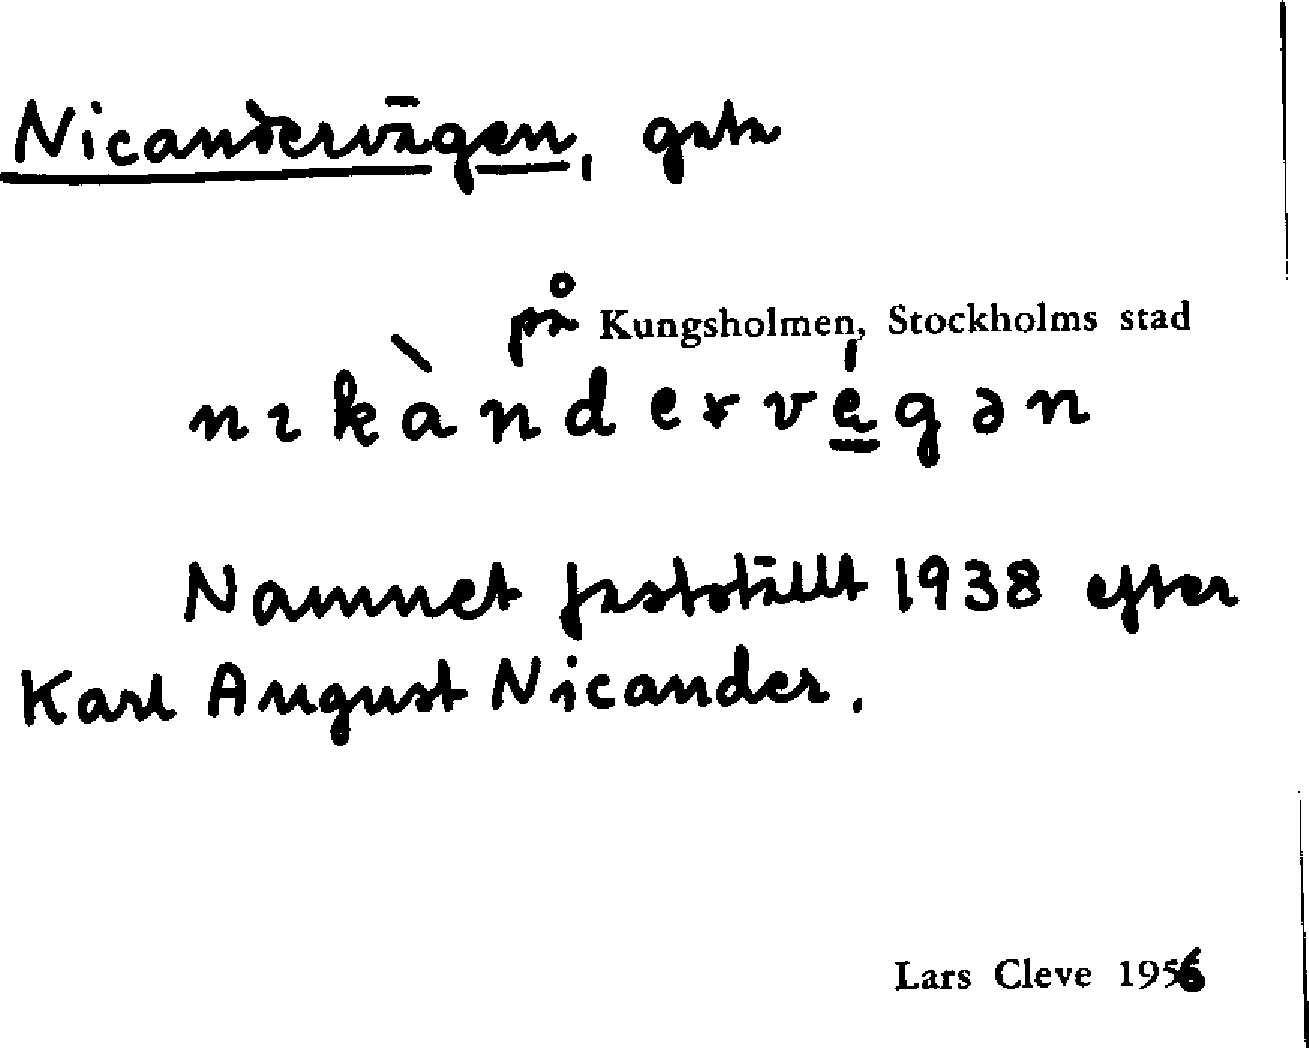 Nicandervägen, gata
på Kungsholmen, Stockholms stad
nıkàndervégən
Namnet fastställt 1938 efter
Karl August Nicander.
Lars Cleve 1956